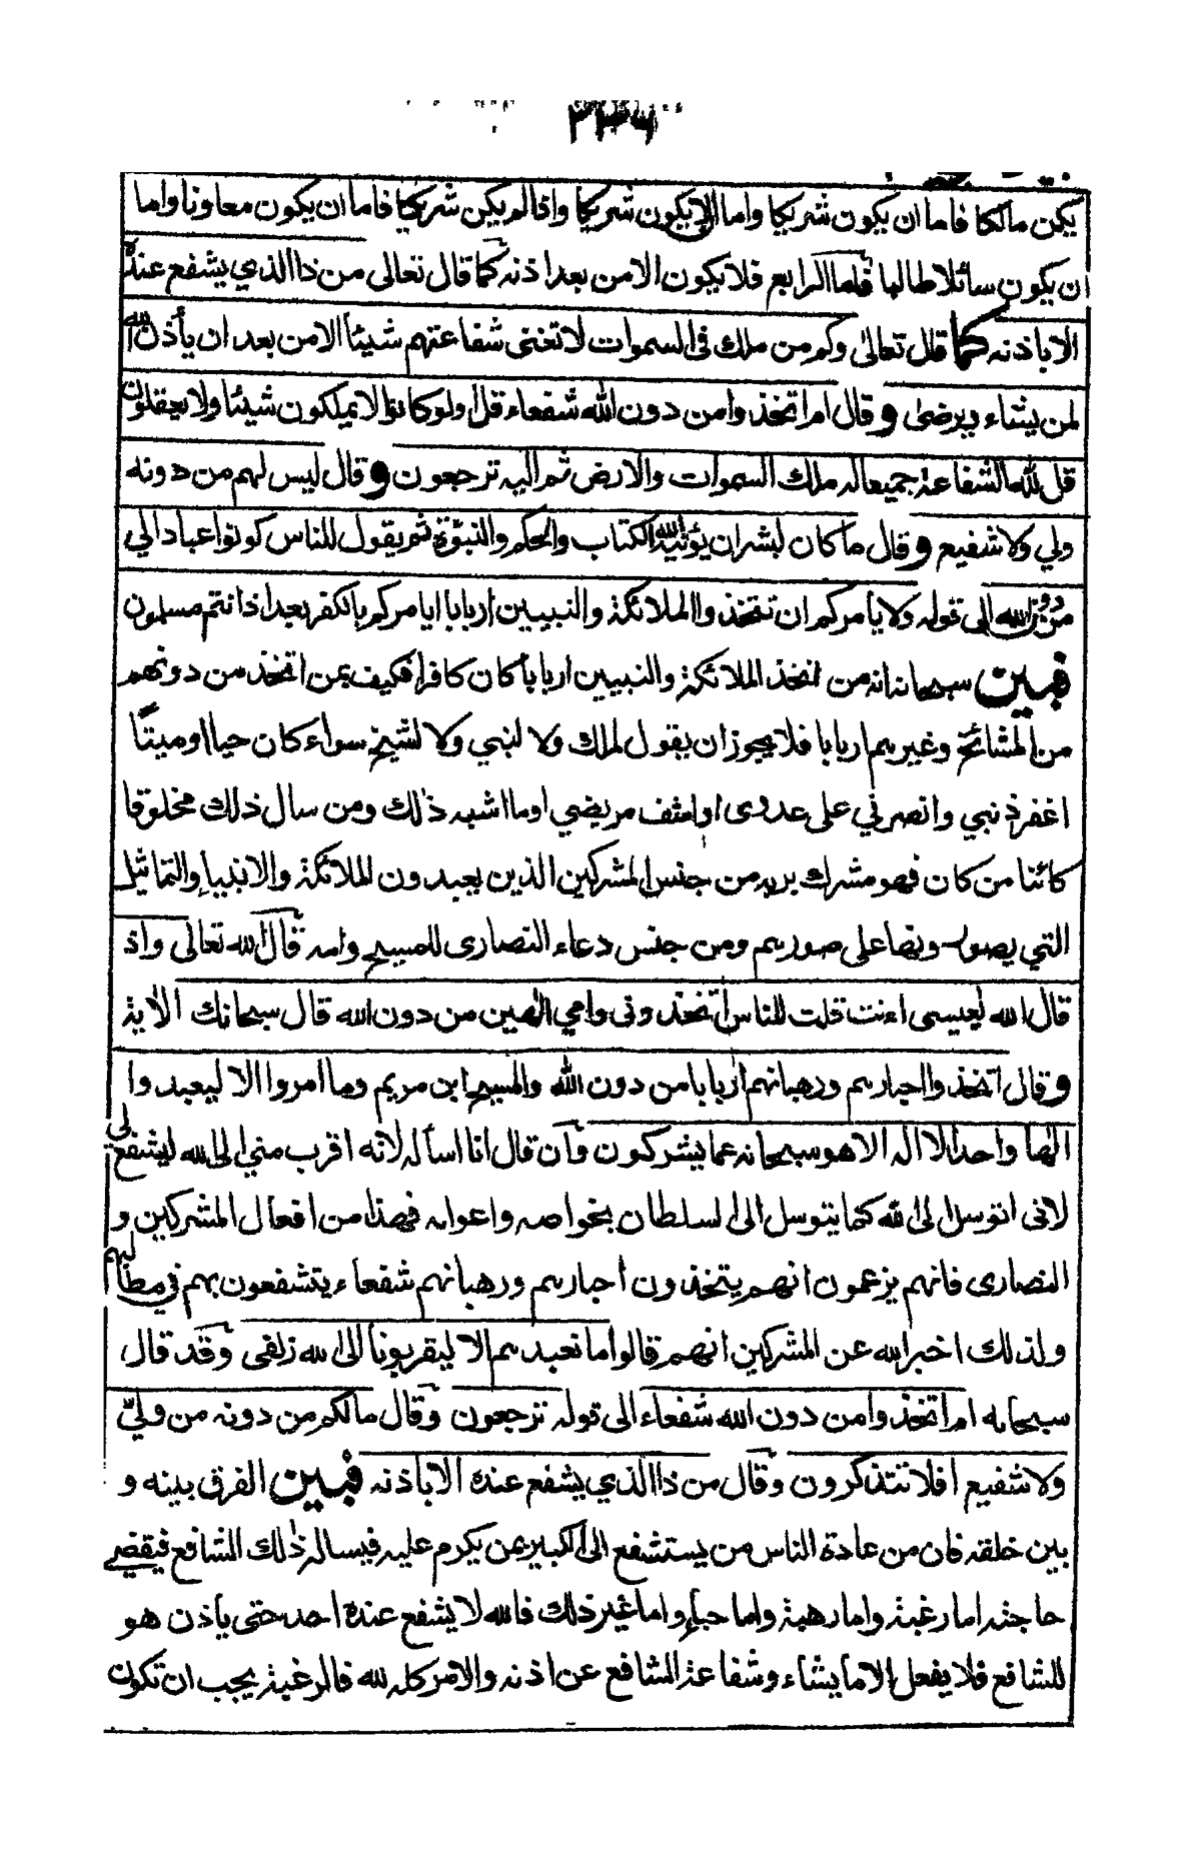 ٣٣٦
يكن مالكا فاما ان يكون شريكا واما ان لا يكون شريكا واذا لم يكن شريكا فاما ان يكون معاونا واما
ان يكون سائلا طالبا فاما الرابع فلا يكون الا من بعد اذنه كما قال تعالى من ذا الذي يشفع عنده
الا باذنه كما قال تعالى وكم من ملك في السموات لا تغني شفاعتهم شيئا الا من بعد ان يأذن الله
لمن يشاء ويرضى وقال ام اتخذوا من دون الله شفعاء قل اولو كانوا لا يملكون شيئا ولا يعقلون
قل لله الشفاعة جميعا له ملك السموات والارض ثم اليه ترجعون وقال ليس لهم من دونه
ولي ولا شفيع وقال ما كان لبشر ان يؤتيه الله الكتاب والحكم والنبوة ثم يقول للناس كونوا عبادا لي
من دون الله الى قوله ولا يأمركم ان تتخذوا الملائكة والنبيين اربابا ايامركم بالكفر بعد اذ انتم مسلمون
فبين سبحانه انه من اتخذ الملائكة والنبيين اربابا كان كافرا فكيف بمن اتخذ من دونهم
من المشائخ وغيرهم اربابا فلا يجوز ان يقول لملك ولا لنبي ولا لشيخ سواء كان حيا او ميتا
اغفر ذنبي وانصرني على عدوى او اشف مريضي او ما اشبه ذلك ومن سال ذلك مخلوقا
كائنا من كان فهو مشرك بربه من جنس المشركين الذين يعبدون الملائكة والانبياء والتماثيل
التي يصورونها على صورهم ومن جنس دعاء النصارى للمسيح وامه قال الله تعالى واذ
قال الله لعيسى اءنت قلت للناس اتخذوني وامي الهين من دون الله قال سبحانك الاية
وقال اتخذوا احبارهم ورهبانهم اربابا من دون الله والمسيح ابن مريم وما امروا الا ليعبدوا
الها واحدا لا اله الا هو سبحانه عما يشركون وان قال انا اسأله لانه اقرب مني الى الله ليشفع لي
لاني اتوسل الى الله كما يتوسل الى السلطان بخواصه واعوانه فهذا من افعال المشركين و
النصارى فانهم يزعمون انهم يتخذون احبارهم ورهبانهم شفعاء يتشفعون بهم في مطالبهم
ولذلك اخبر الله عن المشركين انهم قالوا ما نعبدهم الا ليقربونا الى الله زلفى وقد قال
سبحانه ام اتخذوا من دون الله شفعاء الى قوله ترجعون وقال مالكم من دونه من ولي
ولا شفيع افلا تتذكرون وقال من ذا الذي يشفع عنده الا باذنه فبين الفرق بينه و
بين خلقه فان من عادة الناس من يستشفع الى الكبير بمن يكرم عليه فيساله ذلك الشافع فيقضي
حاجته اما رغبة واما رهبة واما حياء واما غير ذلك فالله لا يشفع عنده احد حتى ياذن هو
للشافع فلا يفعل الا ما يشاء وشفاعة الشافع عن اذنه والامر كله لله فالرغبة يجب ان تكون